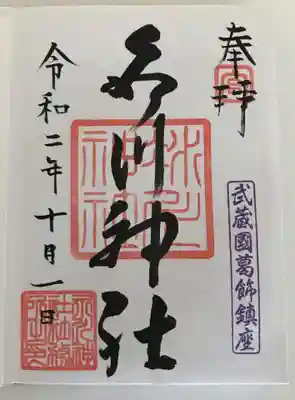 奉拝
武蔵國葛飾鎮座
氷川神社
氷川神社
令和二年十月一日